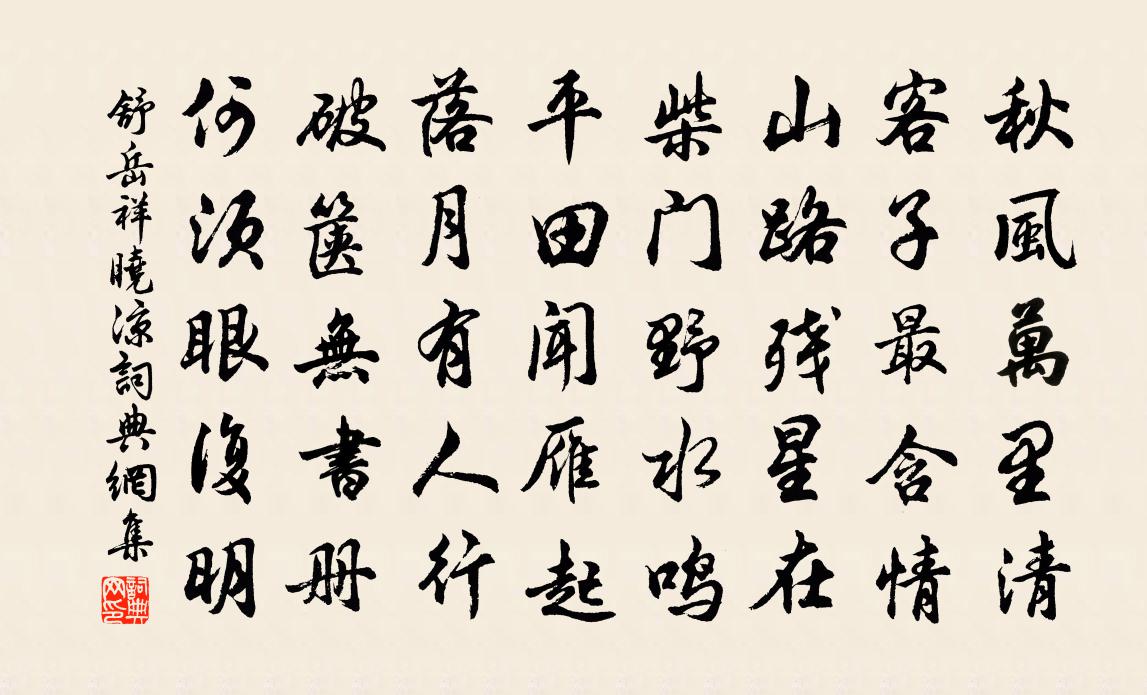 秋風萬里清
客子最含情
山路残星在
柴门野水鸣
平田闻雁起
落月有人行
破箧無書册
何须眼復明
舒岳祥曉凉詞典網集
詞典
网印